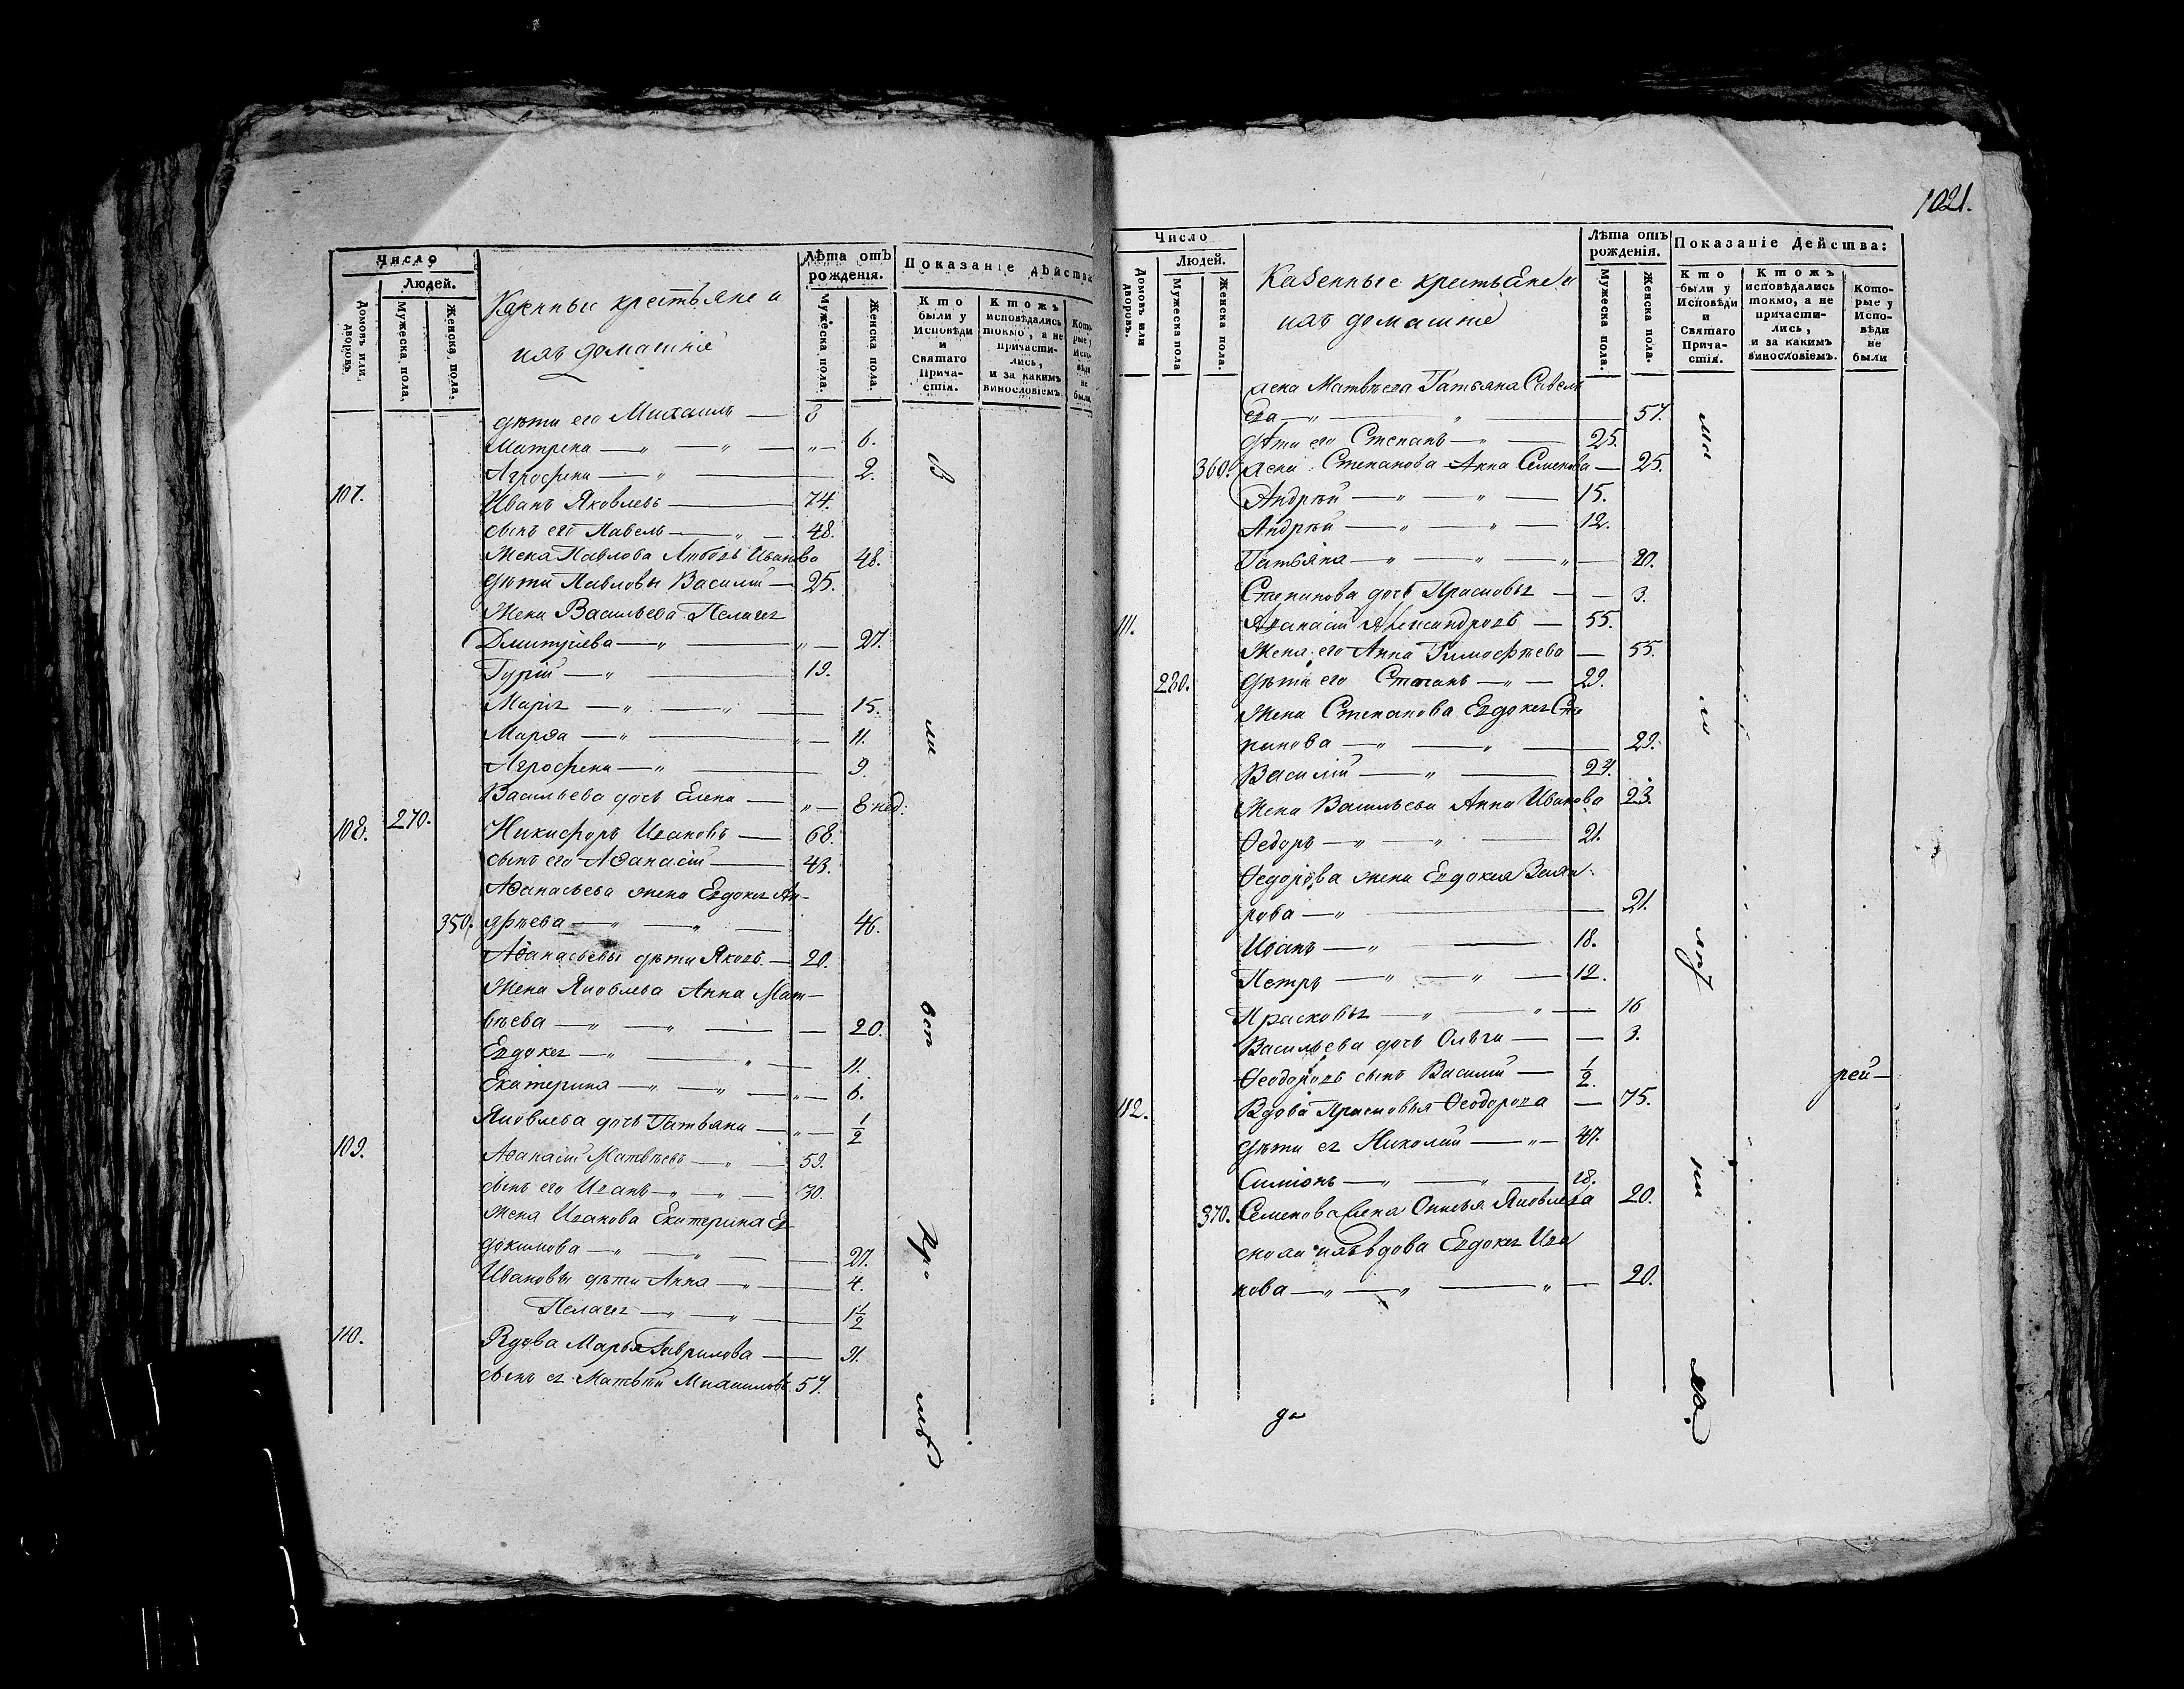 Число
Людей.
Домовъ или дворовъ.
Мужеска пола.
Женска пола.
Казенные крестьяне и
ихъ домашніе
Лѣта отъ рожденія.
Мужеска пола.
Женска пола.
Показаніе дѣйства
Кто были у Исповѣди и Святаго Причастія.
Ктожъ исповѣдались токмо, а не причастились, и за какимъ винословіемъ.
дѣти его Михаилъ — 8
Матрена — 6.
Агрофена — 2.
107. Иванъ Яковлевъ — 74.
сынъ его Павелъ — 48.
Жена Павлова Любовь Иванова 48.
дѣти Павловы Василій — 25.
Жена Васильева Пелагея
Дмитріева — 27.
Гурій — 19.
Марія — 15.
Марѳа — 11.
Агрофена — 9.
Васильева дочь Елена — 8 нед:
108. 270. Никифоръ Ивановъ — 68.
сынъ его Аѳанасій — 43.
Аѳанасьева жена Евдокея Ан-
350. дрѣева — 46.
Аѳанасьевы дѣти Яковъ — 20.
Жена Яковлева Анна Мат-
вѣева — 20.
Евдокея — 11.
Екатерина — 6.
Яковлева дочь Татьяна — 1/2
109. Аѳанасій Матвѣевъ — 59.
сынъ его Иванъ — 30.
Жена Иванова Екатерина Ев-
докимова — 27.
Ивановы дѣти Анна — 4.
Пелагея — 1 1/2
110. Вдова Марья Гаврилова — 91.
сынъ ея Матвѣй Михаиловъ 57.
1021.
Число
Людей.
Домовъ или дворовъ.
Мужеска пола
Женска пола.
Казенные крестьяне и
ихъ домашніе
Лѣта отъ рожденія.
Мужеска пола.
Женска пола.
Показаніе дѣйства:
Кто были у Исповѣди и Святаго Причастія.
Ктожъ исповѣдались токмо, а не причастились, и за какимъ винословіемъ.
Которые у Исповѣди не были
жена Матвѣева Татьяна Савель
ева — 57.
дѣти его Степанъ — 25.
360. жена Степанова Анна Семенова — 25.
Андрѣй — 15.
Андрѣй — 12.
Татьяна — 20.
Степанова дочь Прасковья — 3.
111. Аѳанасій Александровъ — 55.
Жена его Анна Тимофѣева — 55.
280. дѣти его Степанъ — 29.
Жена Степанова Евдокея Сте
панова — 29.
Василій — 24.
Жена Васильева Анна Иванова 23.
Ѳедоръ — 21.
Ѳедорова жена Евдокея
рова — 21.
Иванъ — 18.
Петръ — 12.
Прасковья — 16
Васильева дочь Ольга — 3.
Ѳеодоровъ сынъ Василій — 1/2.
112. Вдова Прасковья Ѳеодорова — 75.
дѣти ея Николай — 47.
Симіонъ — 18.
370. Семенова жена Яковлева 20.
вдова Евдокея Ива
нова — 20.
рей-
да